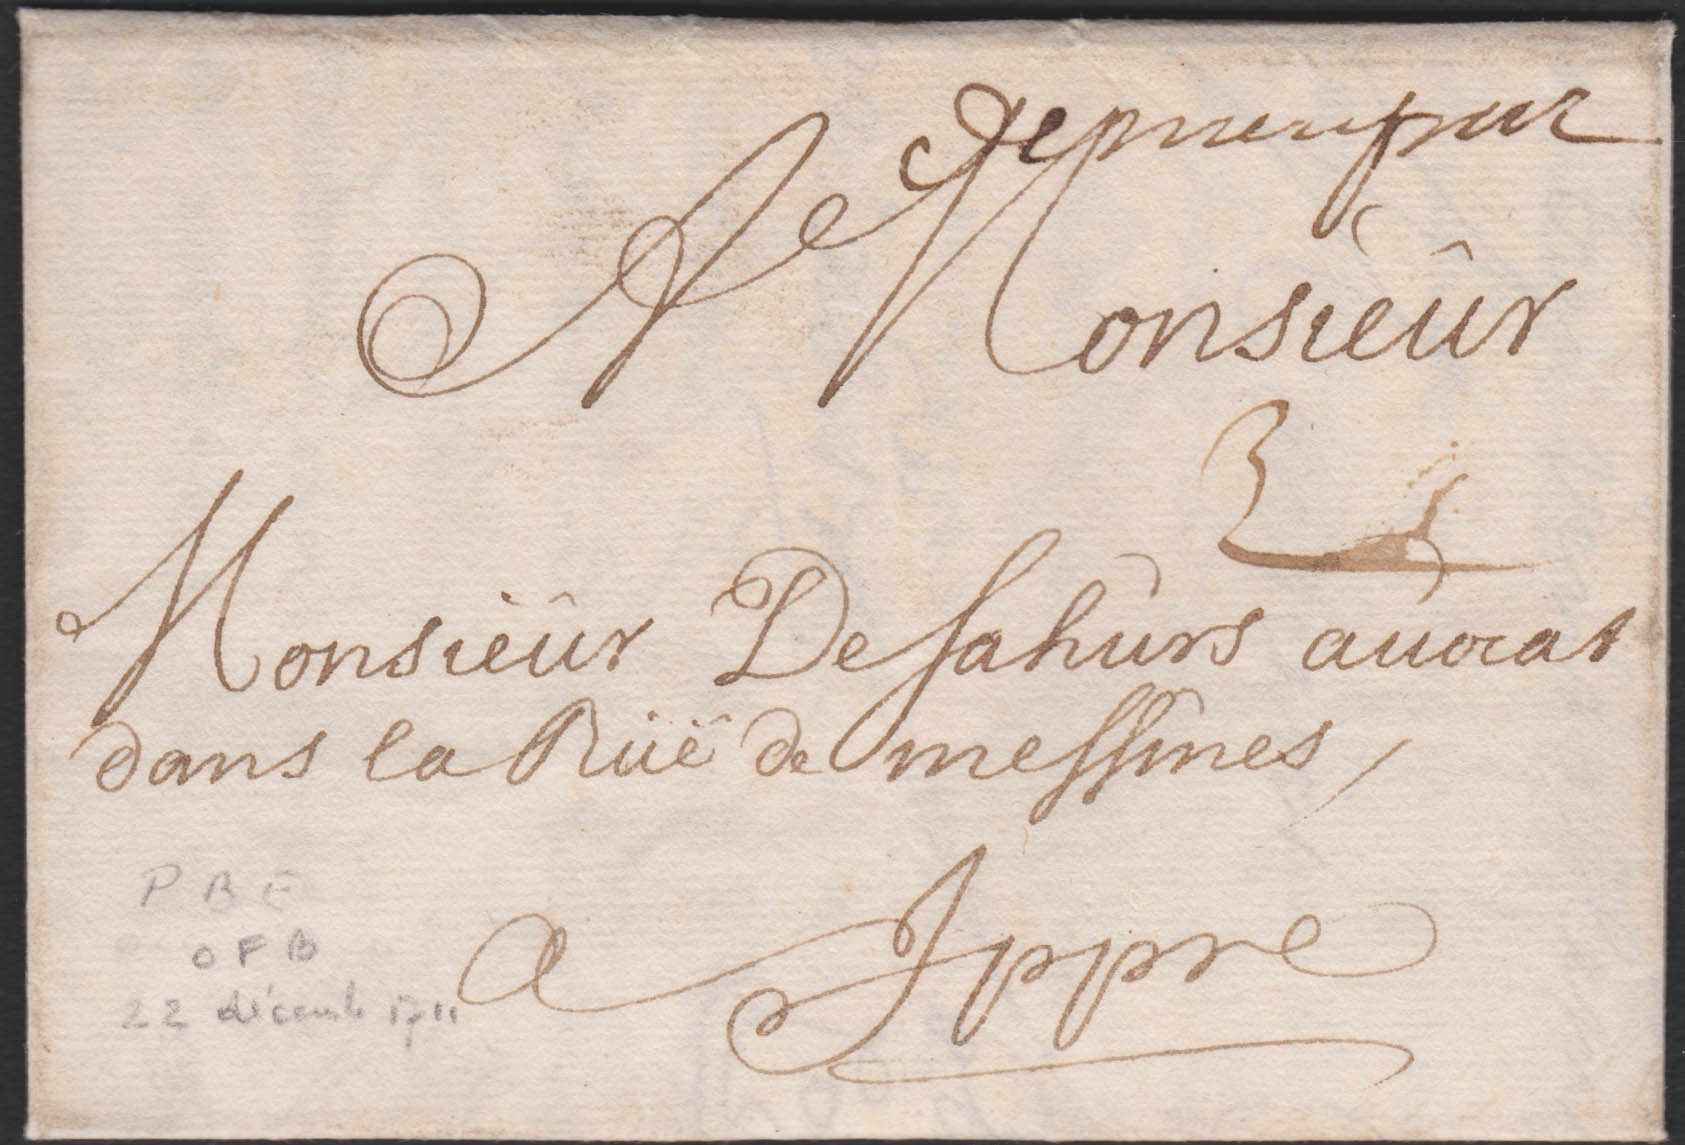 de namur
A Monsieùr
3
Monsieùr Desahùrs auocat
dans la Rüë de messines
a Ippre
P B E
O F B
22 décemb 1711